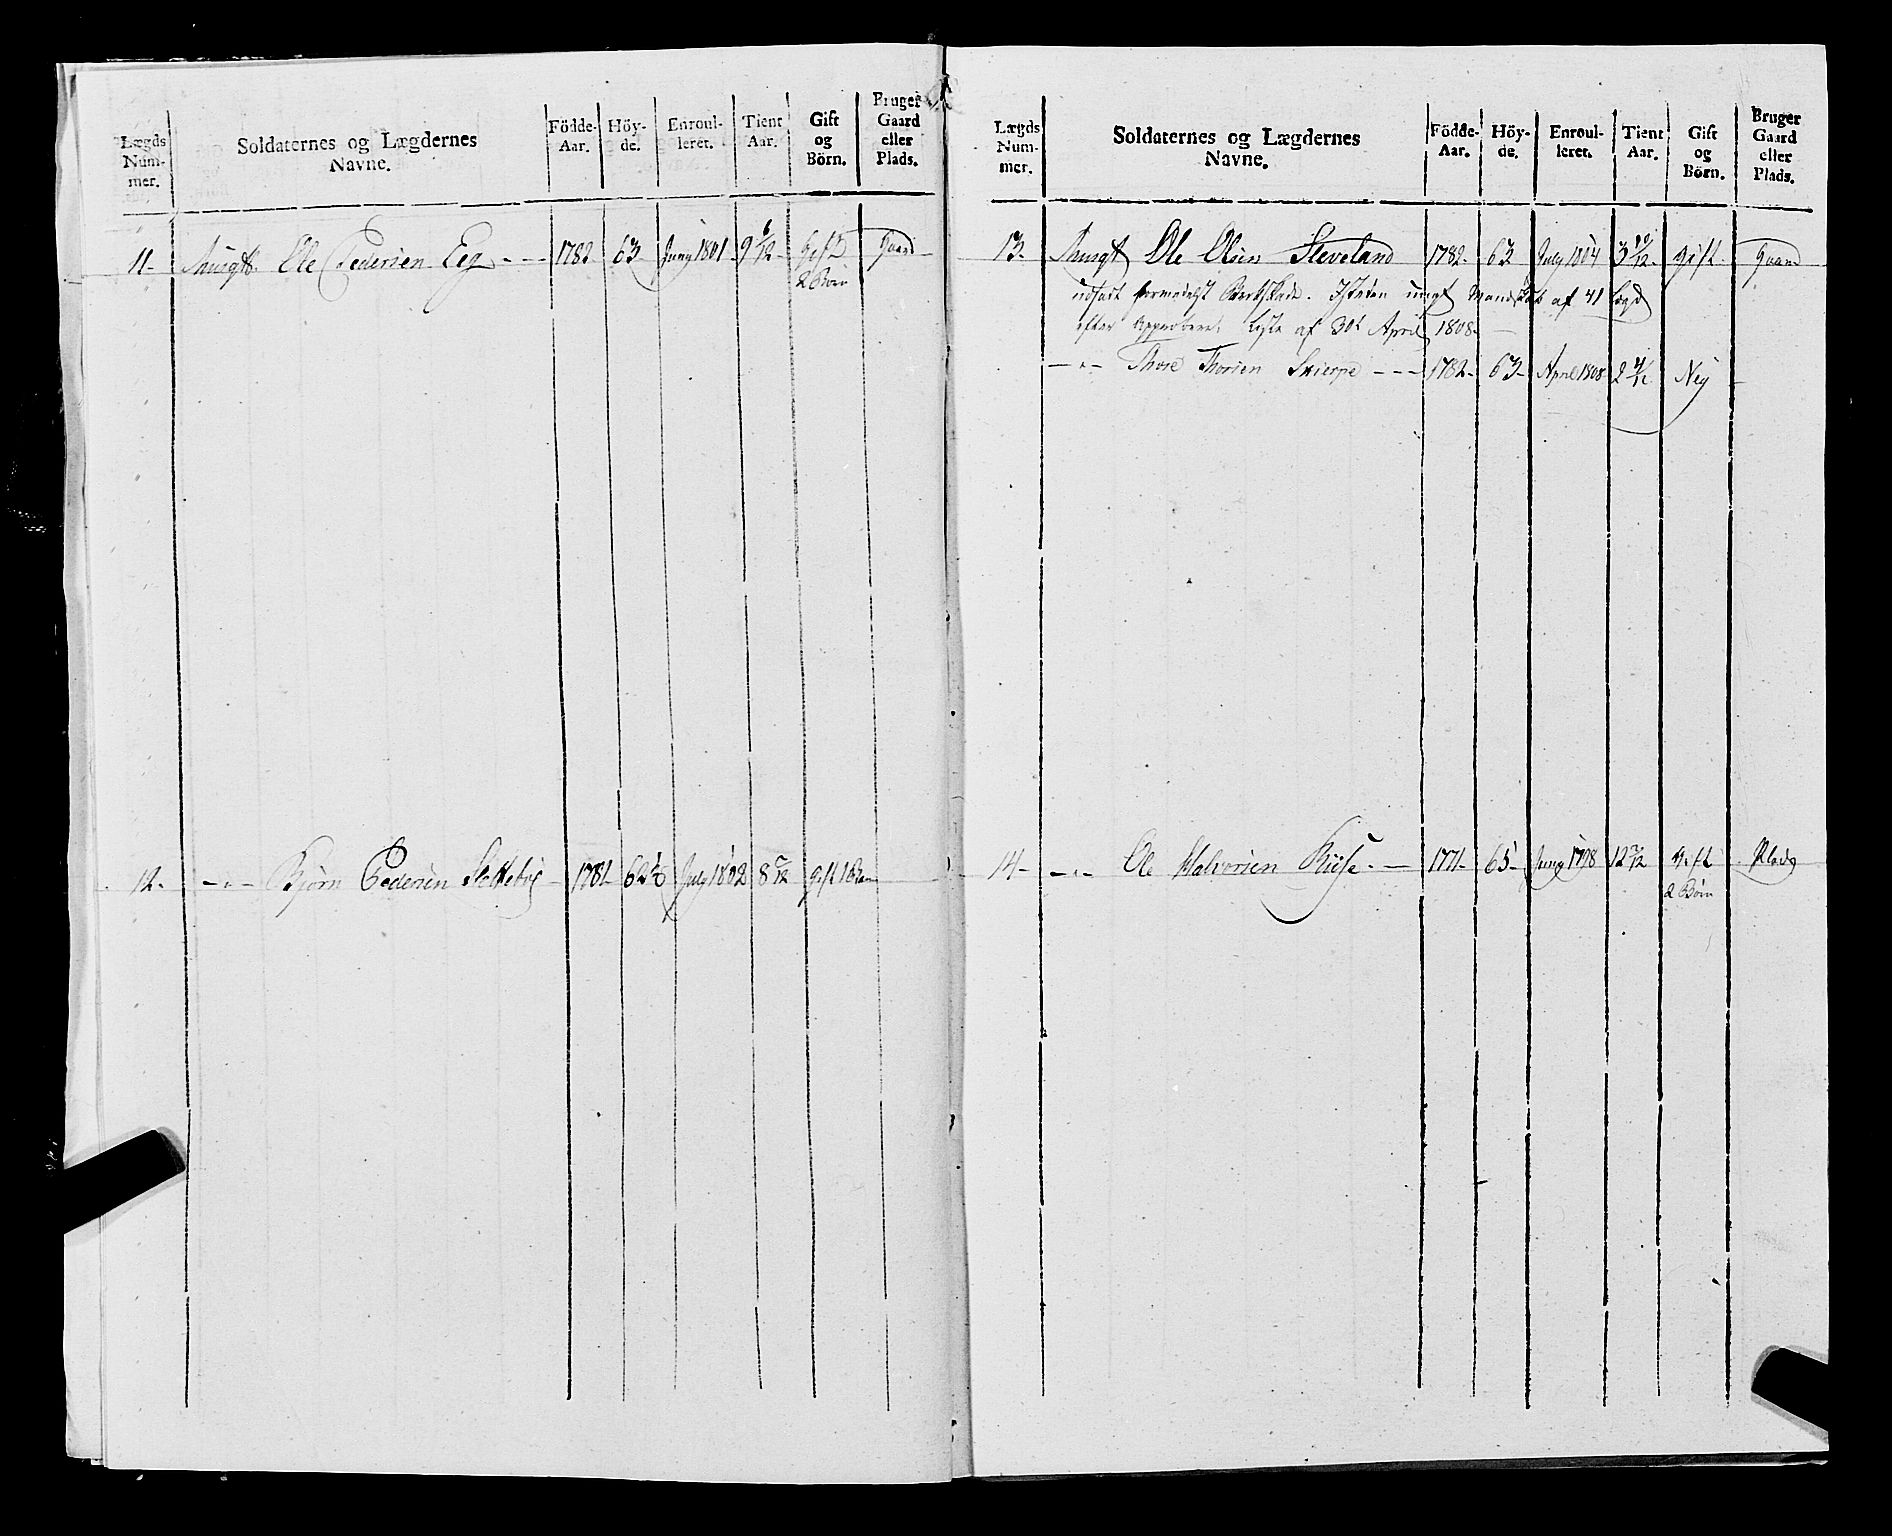 Lægds Num- mer. | Soldaternes og Lægdernes Navne. | Födde- Aar. | Höy- de. | Enroul- leret. | Tient Aar. | Gift og Börn. | Bruger Gaard eller Plads.
11- Musqt. Ole Pedersen Eeg - - - 1782- 63 Juny 1801 9 6/12 Gift Gaard
2 Börn
12- -"- Björn Pedersen 1781- 62½ July 1802 8 5/12 gift 1 Barn
Lægds Num- mer. | Soldaternes og Lægdernes Navne. | Födde- Aar. | Höy- de. | Enroul- leret. | Tient Aar. | Gift og Börn. | Bruger Gaard eller Plads.
13- Musqt Ole Olsen Steveland 1782- 63 July 1804 3 10/12 gift- Gaard
udsat formedelst Brokskade. Isteden ungt Mandskab af 41 Lægd
efter Approberet Liste af 30t April 1808-
-"- Thore Thorsen Skierpe - - - 1782- 63- April 1808 2 Ney -
14- -"- Ole Halvorsen 1771- 65- Juny 1798 12 5/12 gift Plads
2 Börn